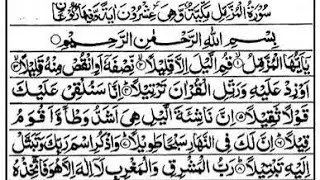 سُورَةُ الْمُزَّمِّلِ مَكِّيَّةٌ وَّهِيَ عِشْرُوْنَ اٰيَةً
بِسْمِ اللّٰهِ الرَّحْمٰنِ الرَّحِيْمِ
يٰۤاَيُّهَا الْمُزَّمِّلُ قُمِ الَّيْلَ اِلَّا قَلِيْلًا نِّصْفَهٗۤ اَوِ انْقُصْ مِنْهُ قَلِيْلًا
اَوْ زِدْ عَلَيْهِ وَرَتِّلِ الْقُرْاٰنَ تَرْتِيْلًا اِنَّا سَنُلْقِيْ عَلَيْكَ
قَوْلًا ثَقِيْلًا اِنَّ نَاشِئَةَ الَّيْلِ هِيَ اَشَدُّ وَطْاً وَّاَقْوَمُ
قِيْلًا اِنَّ لَكَ فِي النَّهَارِ سَبْحًا طَوِيْلًا وَاذْكُرِ اسْمَ رَبِّكَ وَتَبَتَّلْ
اِلَيْهِ تَبْتِيْلًا رَبُّ الْمَشْرِقِ وَالْمَغْرِبِ لَاۤ اِلٰهَ اِلَّا هُوَ فَاتَّخِذْهُ